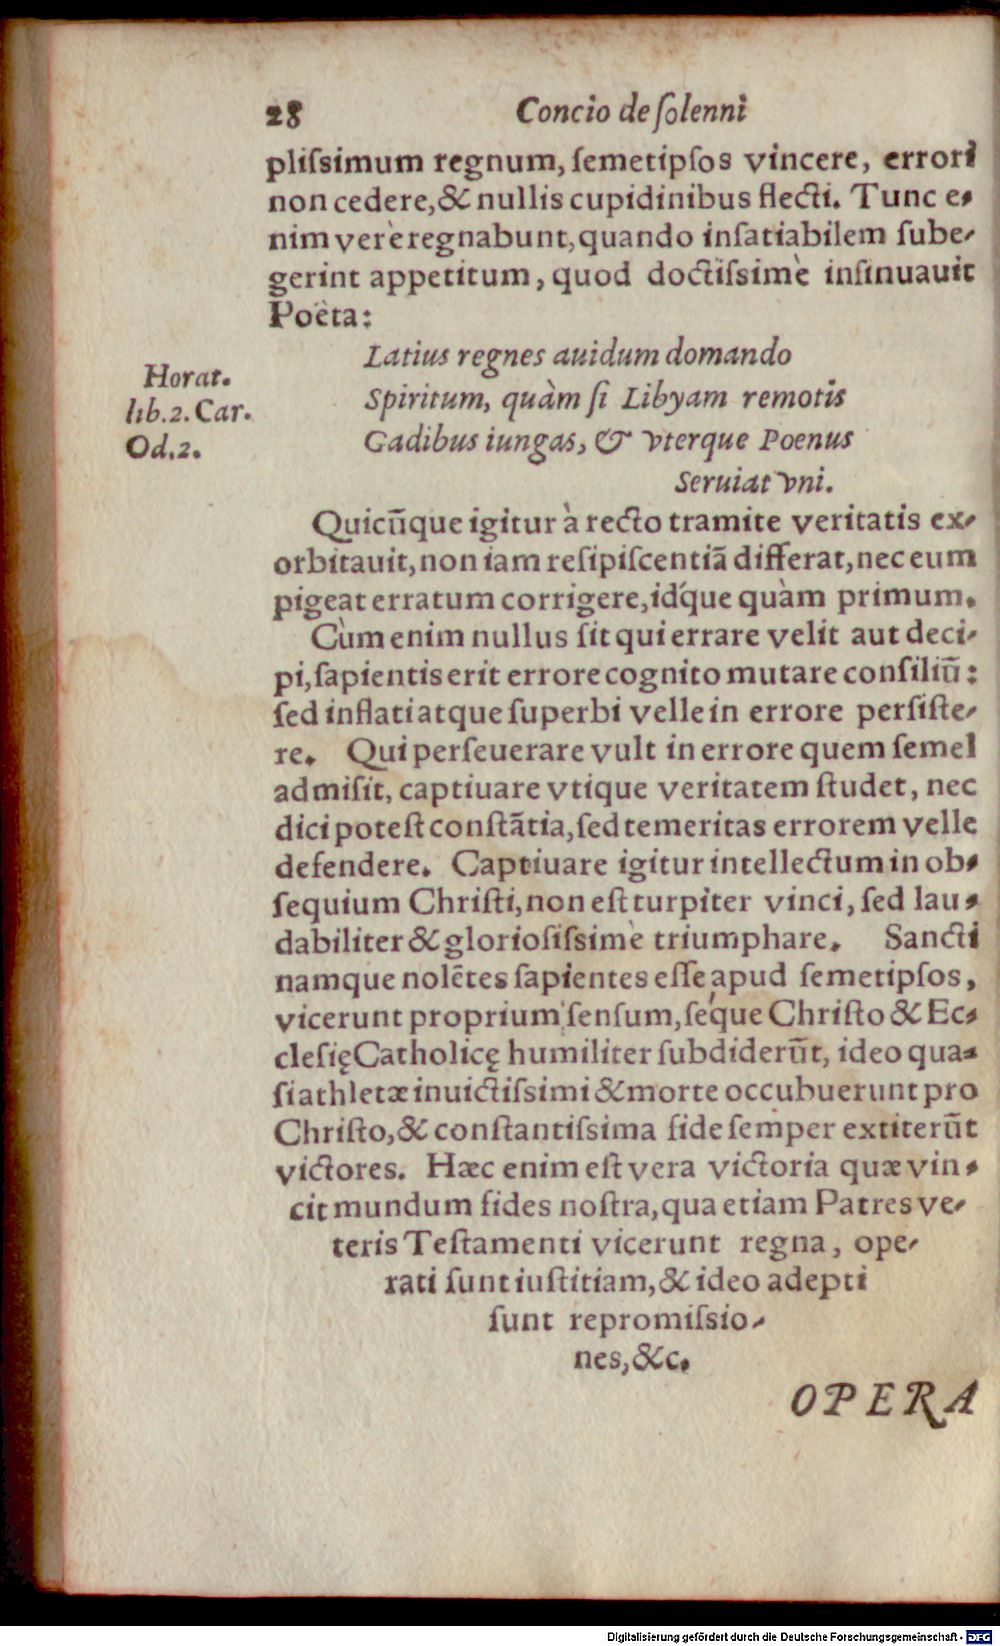 28 Concio de ſolenni
pliſsimum regnum, ſemetipſos vincere, errori
non cedere, & nullis cupidinibus flecti. Tunc e-
nim verè regnabunt, quando inſatiabilem ſube-
gerint appetitum, quod doctiſsimè inſinuauit
Poëta:
Latius regnes auidum domando
Horat.
lib.2. Car.
Od.2.
Spiritum, quàm ſi Libyam remotis
Gadibus iungas, & vterque Poenus
Seruiat vni.
Quicũque igitur à recto tramite veritatis ex-
orbitauit, non iam reſipiſcentiã differat, nec eum
pigeat erratum corrigere, idq́ue quàm primum.
Cùm enim nullus ſit qui errare velit aut deci-
pi, ſapientis erit errore cognito mutare conſiliũ:
ſed inflati atque ſuperbi velle in errore perſiſte-
re. Qui perſeuerare vult in errore quem ſemel
admiſit, captiuare vtique veritatem ſtudet, nec
dici poteſt conſtãtia, ſed temeritas errorem velle
defendere. Captiuare igitur intellectum in ob-
ſequium Chriſti, non eſt turpiter vinci, ſed lau-
dabiliter & glorioſiſsimè triumphare. Sancti
namque nolẽtes ſapientes eſſe apud ſemetipſos,
vicerunt proprium ſenſum, ſeq́ue Chriſto & Ec-
cleſię Catholicę humiliter ſubdiderũt, ideo qua-
ſi athletæ inuictiſsimi & morte occubuerunt pro
Chriſto, & conſtantiſsima fide ſemper extiterũt
victores. Hæc enim eſt vera victoria quæ vin-
cit mundum fides noſtra, qua etiam Patres ve-
teris Teſtamenti vicerunt regna, ope-
rati ſunt iuſtitiam, & ideo adepti
ſunt repromiſsio-
nes, &c.
OPERA
Digitalisierung gefördert durch die Deutsche Forschungsgemeinschaft - DFG